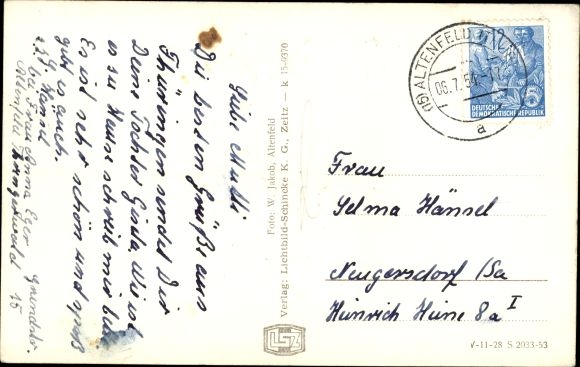 Liebe Mutti
Die besten Grüße aus
Thüringen sendet Dir
Deine Tochter Gerda Wie ist
es zu Hause schreib mir bitte
Es ist sehr schön und
gut is auch.
z. Zt. Hänsel
bei Frau Anna Eger
Altenfeld Thüringerwald
15
Foto: W. Jakob, Altenfeld
Verlag: Lichtbild-Schincke K. G., Zeitz — k 15-0370
LSZ
(15) ALTENFELD
06.7.54.
a
DEUTSCHE
DEMOKRATISCHE REPUBLIK
5
Frau
Selma Hänsel
Neugersdorf /Sa
Heinrich Heine 8a I
V-11-28 S 2033-53